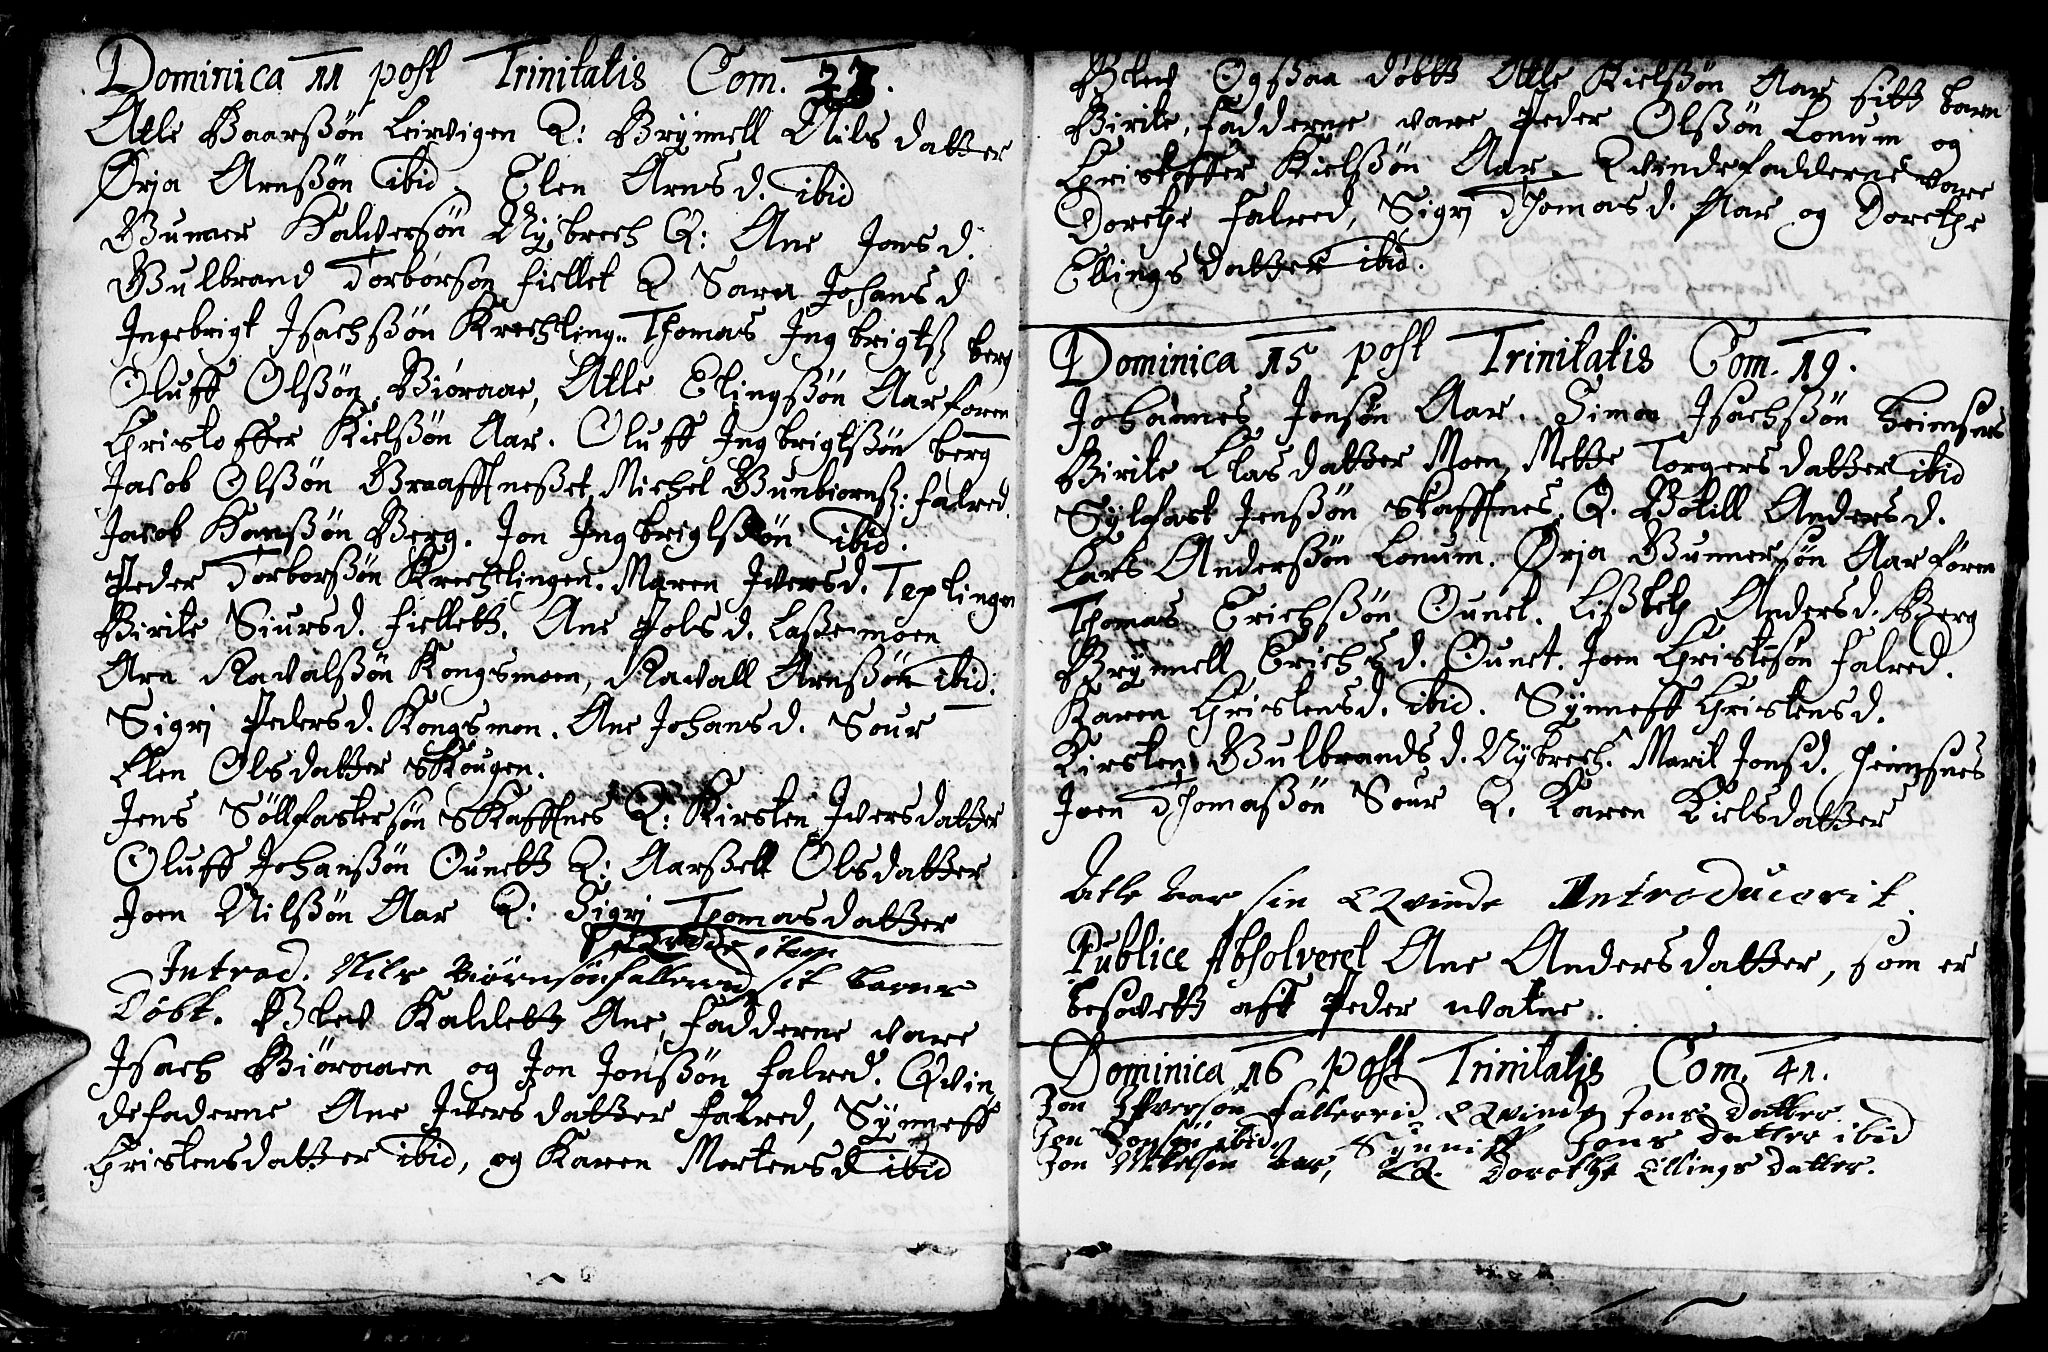 Dominica 11 post Trinitatis Com. 23.
Atle Baarssøn Leirvigen Q: Brynnell Nils datter
Ørja Arnssøn ibid. Elen Arns d. ibid
Gunner Halversøn Nÿbrech Q: Ane Jons d.
Gulbrand Torborsøn fiellet Q Sara Johans d
Ingebrigt Isachssøn Krechling.. Thomas Ingbrigtss berg
Oluff Olssøn Biøraae, Atle Elingssøn Aarforen
Christoffer Kielssøn Aar. Oluff Ingbrigtssøn berg
Jacob Olssøn Graaffnesset, Michel Gunbiornss: falred.
Jacob Hanssøn Berg. Jon Ingbriglssøn ibid.
Peder Torborssøn Krechlingen. Maren Iversd. Teplingen
Birite Siursd. fiellett. Ane Pols d. Lassemoen
Arn Ravalssøn Kongsmoen, Ravall Arnssøn ibid.
Sigri Pedersd. Kongsmon. Ane Johans d. Sour
Elen Ols datter Skougen.
Jens Søllfastersøn Skaffnes Q: Kirsten Ivers datter
Oluff Johanssøn Ounett Q: Aarssell Olsdatter
Joen Nilssøn Aar Q: Sigri Thomas datter
Introd. Nils Biørnsøn fallerud sit barns
Døbt. Blev Kaldett Ane, Fadderne vare
Isach Biøraaen og Jon Jonssøn falred. Qvin
defaderne Ane Ivers datter falred, Sÿnneff
Christensdatter ibid, og Karen Mortens d ibid
Blev Ogssaa døbtt Atle Kielssøn Aar sitt barn
Birite, fadderne vare Peder Olssøn Lonum og
Christoffer Kielssøn Aar. Qvindefadderne vare
Dorethe falred, Sigri Thomas d. Aar og Dorethe
Ellings datter ibid.
Dominica 15 post Trinitatis Com. 19.
Johannes Jonsøn Aar. Simon Isachssøn heimsnes
Birite Clas datter Moen, Mette Torgers datter ibid
Sylfast Jenssøn Skaffnes, Q. Botill Anders d.
Lars Anderssøn Lonum. Ørja Gunnersøn Aarføren
Thomas Erichssøn Ounet. Lissbeth Anders d. Berg
Brÿnnell Erichs d. Ounet. Joen Christensøn falred.
Karen Christensd. ibid. Sÿnneff Christens d.
Kirsten Gulbrands d. Nybrech. Marit Jonsd. heimsnes
Joen Thomassøn Sour Q. Karen Kielsdatter
Atle Aar sin Qvinde Introducerit.
Publice Absolveret Ane Anders datter, som er
besovett aff Peder watne.
Dominica 16 post Trinitatis Com. 41.
Jon Ifversøn fallerud Qvinde Jons datter
Jon Jonsøn ibid. Synniff Jons datter ibid
Jon Nilssøn Aar, Q. Dorethe Ellings datter.